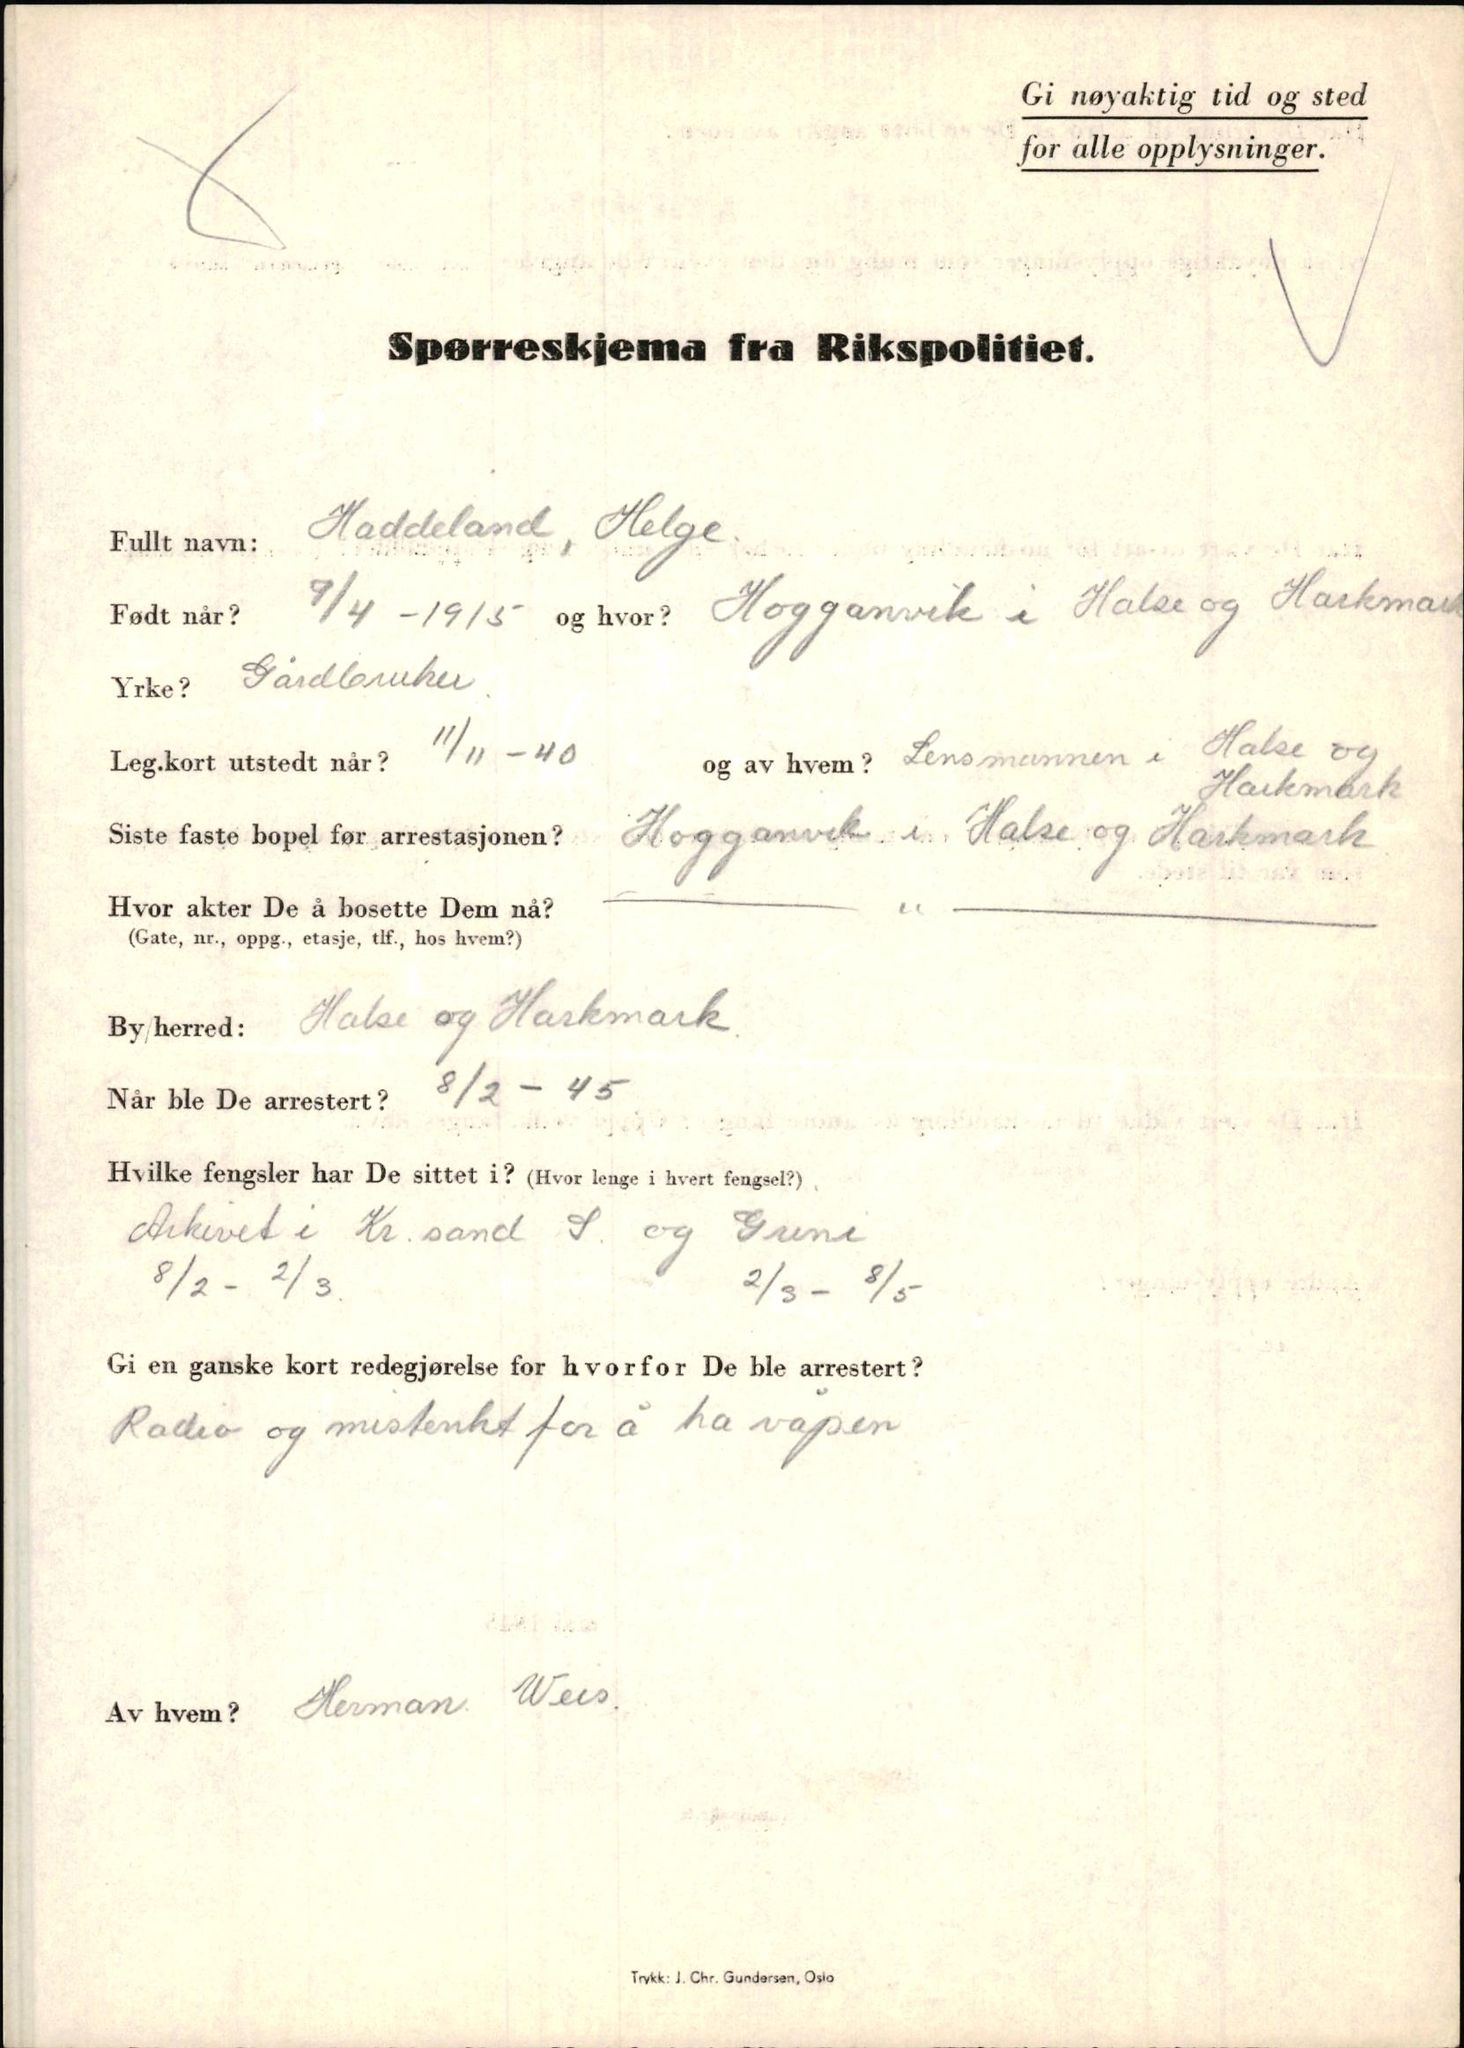 Gi nøyaktig tid og sted
for alle opplysninger.
Spørreskjema fra Rikspolitiet.
Fullt navn: Haddeland, Helge.
Født når? 9/4 - 1915 og hvor? Hogganvik i Halse og Harkmark
Yrke? Gårdbruker.
Leg.kort utstedt når? 11/11 - 40 og av hvem? Lensmannen i Halse og
Harkmark
Siste faste bopel før arrestasjonen? Hogganvik i Halse og Harkmark
Hvor akter De å bosette Dem nå? — " —
(Gate, nr., oppg., etasje, tlf., hos hvem?)
By/herred: Halse og Harkmark.
Når ble De arrestert? 8/2 - 45
Hvilke fengsler har De sittet i? (Hvor lenge i hvert fengsel?)
Arkivet i Kr. sand S. og Grini
8/2 - 2/3. 2/3 - 8/5
Gi en ganske kort redegjørelse for hvorfor De ble arrestert?
Radio og mistenkt for å ha våpen
Av hvem? Herman Weis.
Trykk: J. Chr. Gundersen, Oslo